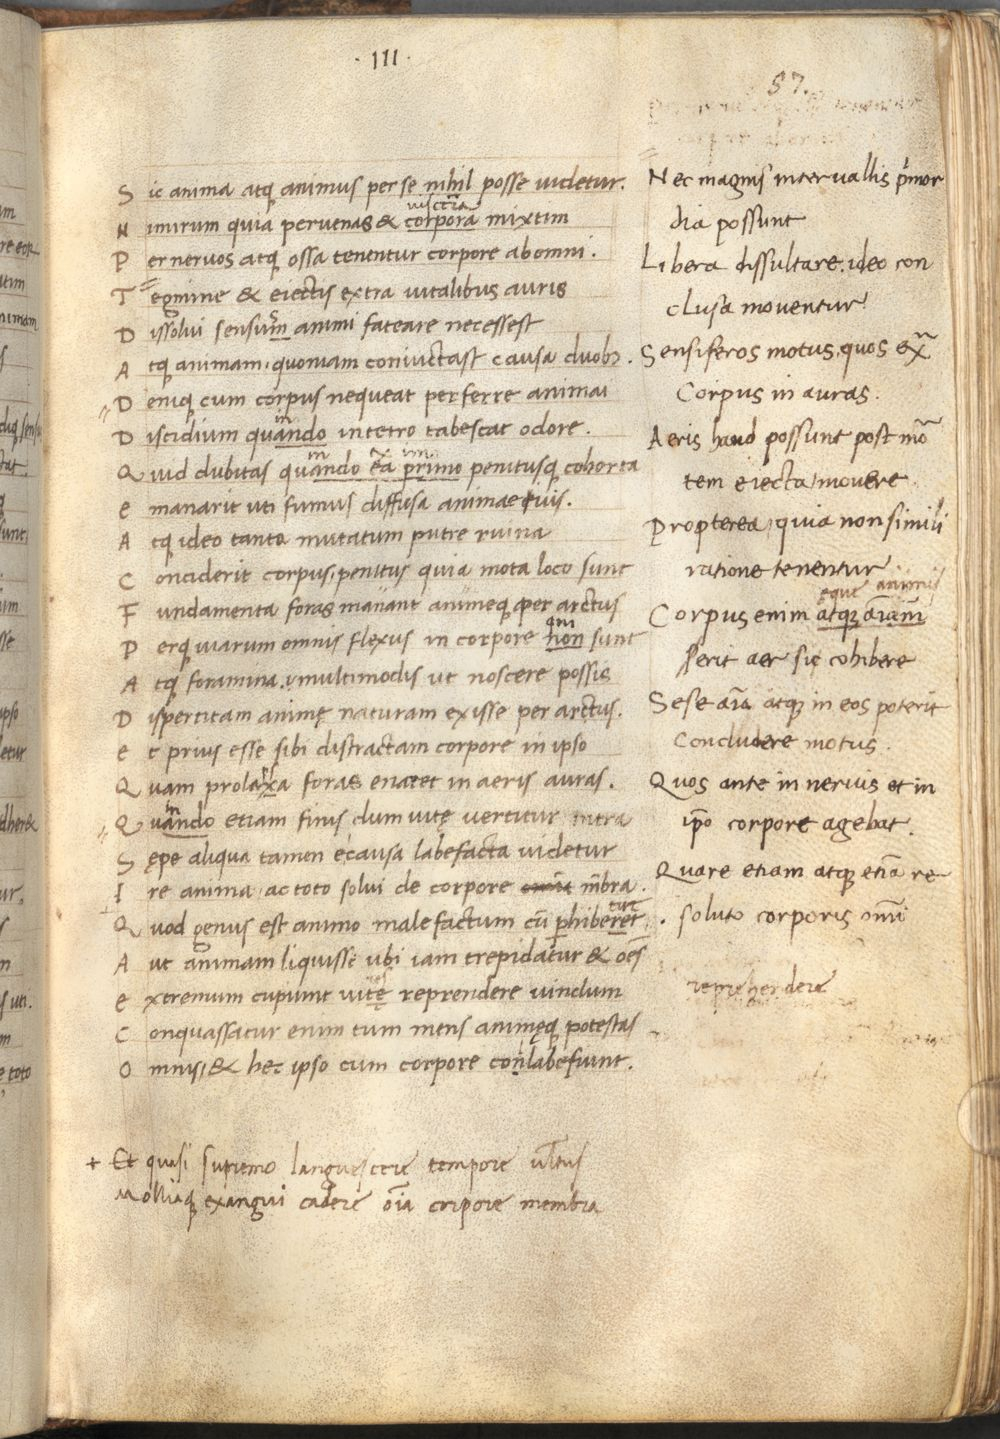 · III ·
57.
S ic anima atq animus per se nihil posse uidetur.
uiscera
N imirum quia per uenas & corpora mixtim
P er neruos atq ossa tenentur corpore ab omni.
T egmine & eiectis extra uitalibus auris
D issolui sensum animi fateare necessest
A tq animam, quoniam coniuctast causa duobꝫ.
D eniq cum corpus nequeat perferre animai
in
D iscidium quando in tetro tabescat odore.
in ex imo
Q uid dubitas quando ea primo penitusq coborta
e manarit uti fumus diffusa animae iuis.
A tq ideo tanta mutatum putre ruina
C onciderit corpus, penitus quia mota loco sunt
F undamenta foras manant animeq per arctus
qui
P erq uiarum omnis flexus in corpore non sunt
A tq foramina, multimodis ut noscere possis
D ispertitam animę naturam exisse per arctus.
e t prius esse sibi distractam corpore in ipso
Q uam prolaxa foras enaret in aeris auras.
in
Q uando etiam finis dum uitę uertitur intra
S ępe aliqua tamen e causa labefacta uidetur
I re anima ac toto solui de corpore omnia mb̄ra.
tur
Q uod genus est animo male factum cū phiberet
A ut animam liquisse ubi iam trepidatur & oēs
e xtremum cupiunt uitę reprendere uinclum
C onquassatur enim tum mens animęq potestas
O mnis, & hec ipso cum corpore conlabefiunt.
+ Et quasi supremo languescere tempore uultus
Molliaq exangui cadere oīa corpore membra
Nec magnis interuallis pimor
dia possunt
Libera dissultare, ideo con
clusa mouentur
Sensiferos motus, quos ex̄
Corpus in auras.
Aeris haud possunt post mō
tem eiecta mouere
Propterea, quia non simili
ratione tenentur
eque animis
Corpus enim atq aīam
serit aer sic cohibere
Sese aīa atq in eos poterit
Concludere motus.
Quos ante in neruis et in
ipō corpore agebat.
Quare etiam atq etiā re
soluto corporis omī
reprehendere